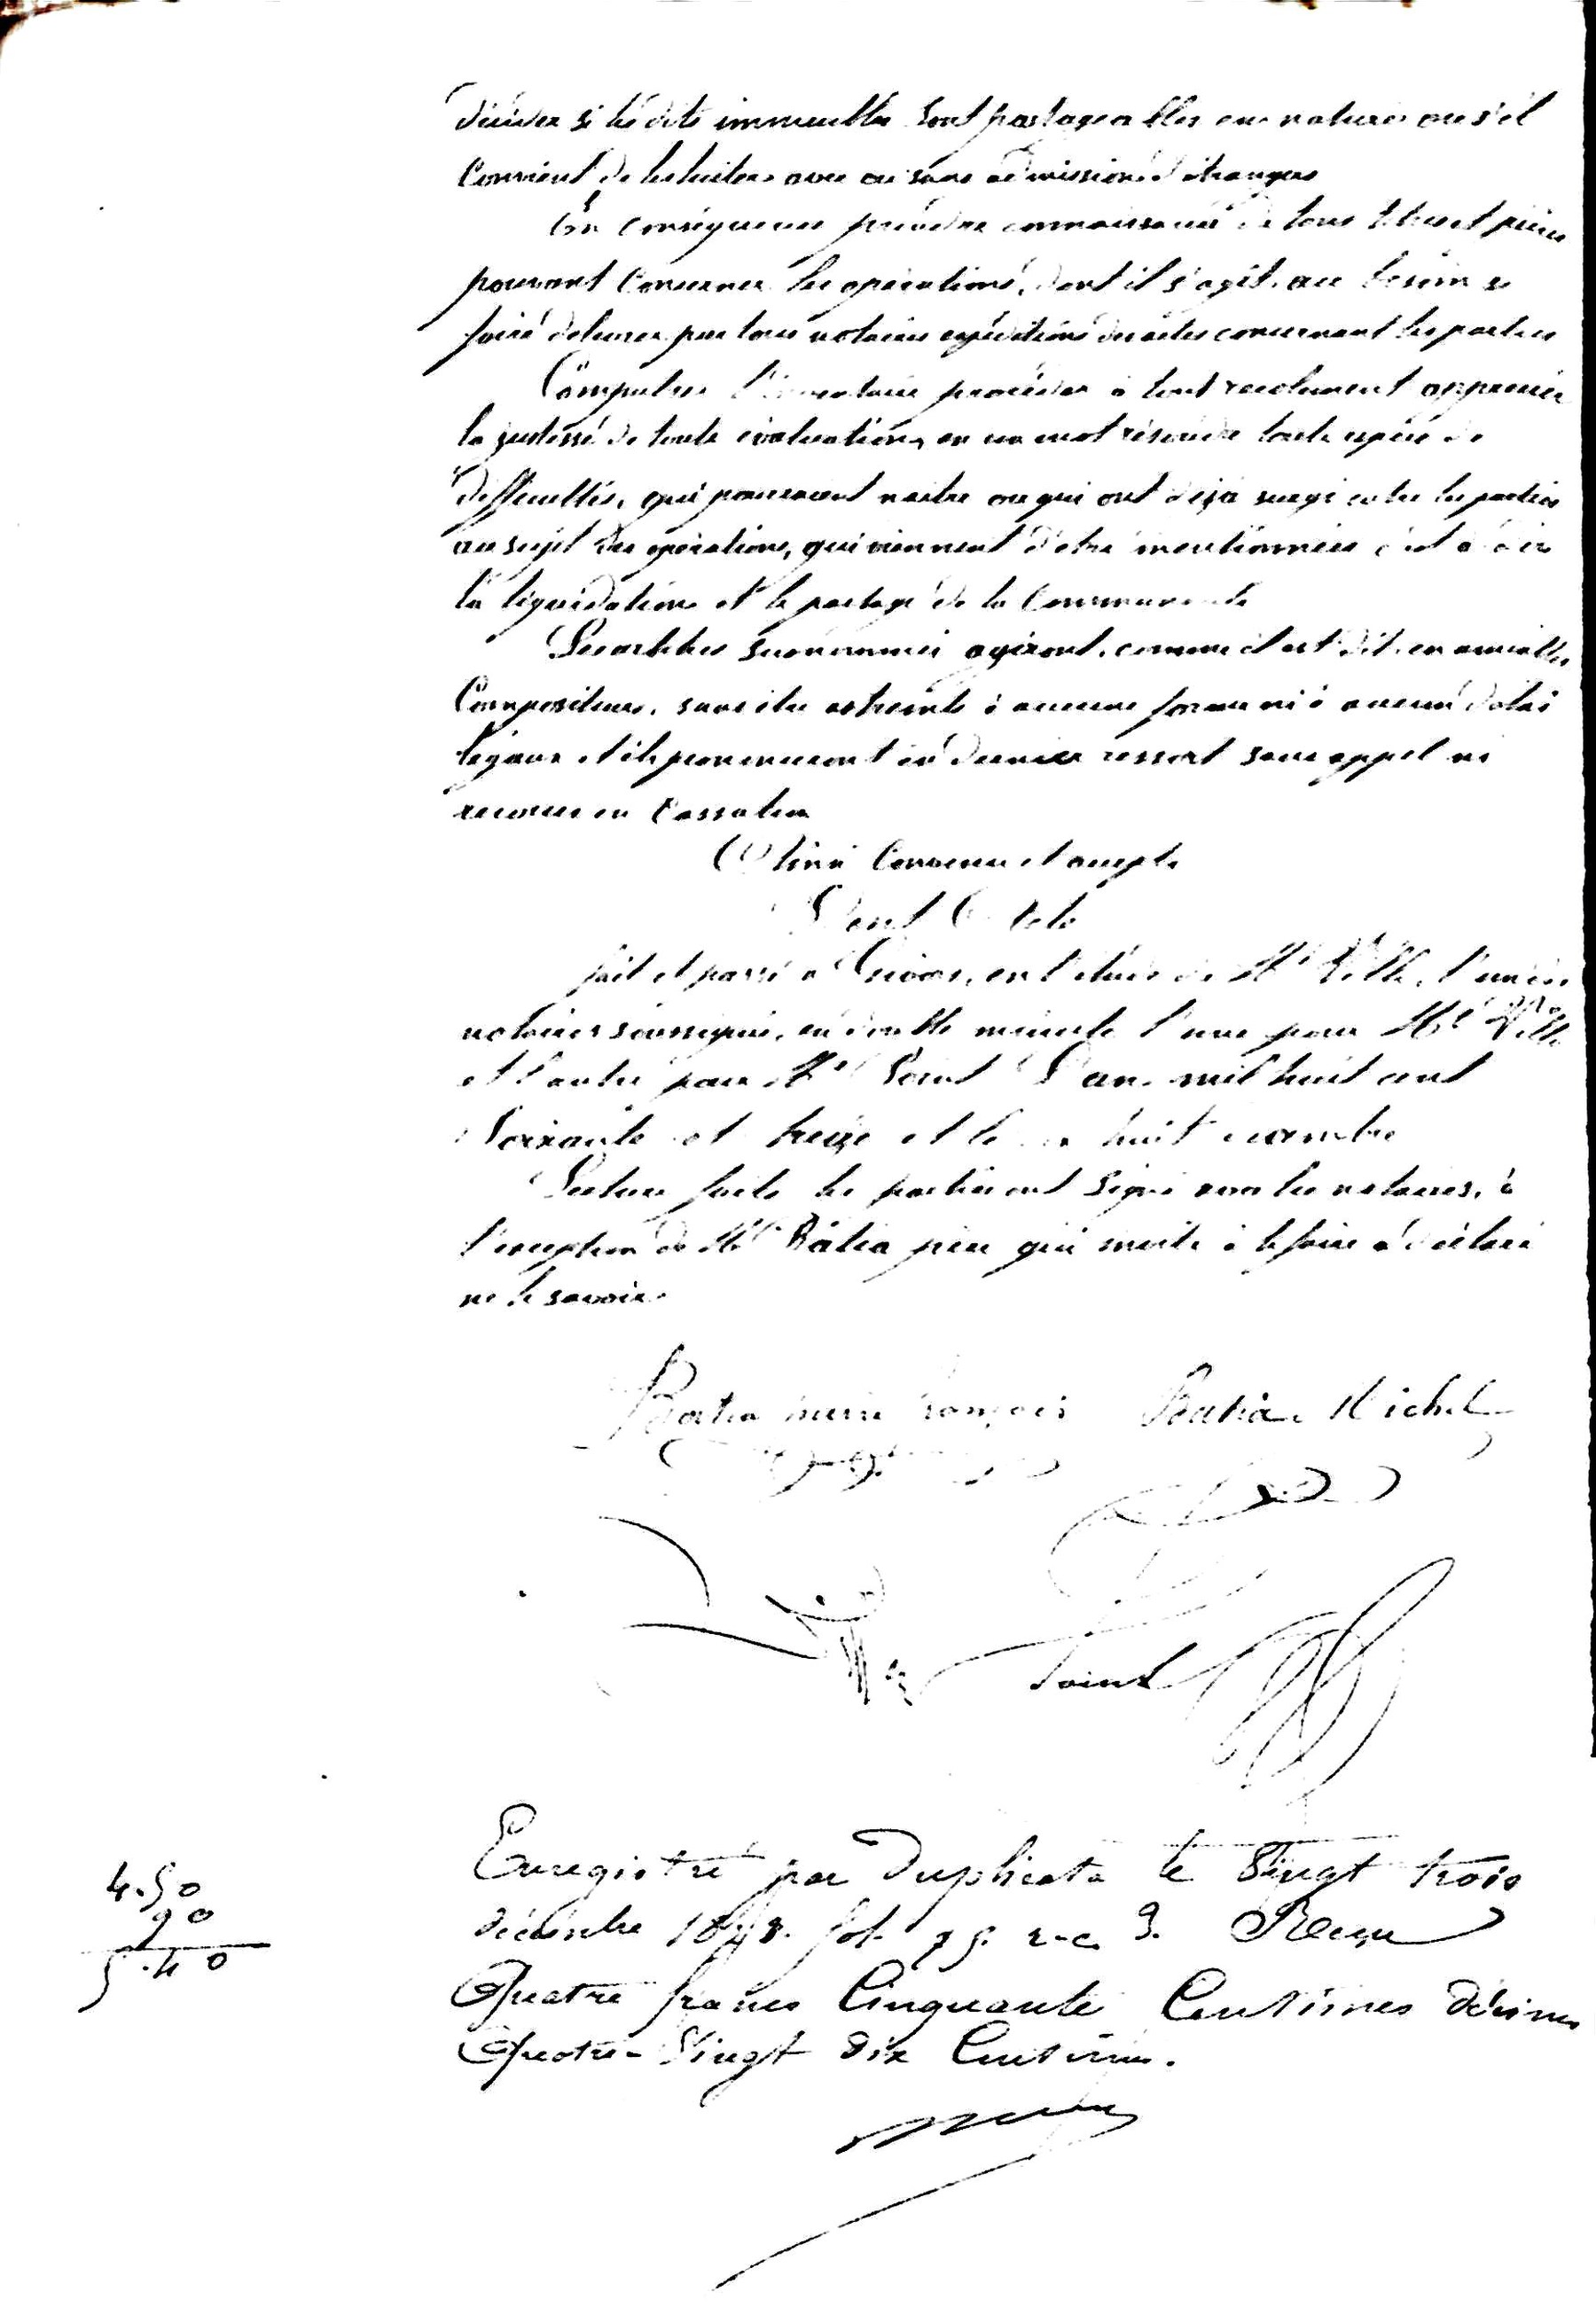 décider si lesdits immeubles sont partageables en nature ou s'il
convient de les liciter avec ou sans admission d'étrangers
En conséquence prendre connaissance de tous titres et pièces
pouvant concerner les opérations, dont il s'agit, au besoin se
faire délivrer par tous notaires expéditions des actes concernant les parties
Compulser l'inventaire procéder à tout recolement apprécier
la justesse de toute évaluation, en un mot résoudre toute espèce de
difficultés, qui pourraient naitre ou qui ont déjà surgi entre les parties
au sujet des opérations, qui viennent d'être mentionnées c'est à dire
la liquidation et le partage de la Communauté
Les arbitres susnommés agiront, comme il est dit, en amiables
Compositeurs, sans être astreints à aucune forme ni à aucun délai
légaux et ils prononceront en dernier ressort sans appel ni
recours en Cassation
Ainsi Convenu et accepté
Dont Acte
fait et passé à en l'étude de Me l'un des
notaires soussignés, en double minute l'une pour Me
et l'autre pour Me Saint L'an mil huit cent
Soixante et treize et le huit
Lecture faite les parties ont signé avec les notaires, à
l'exception de Mr Batia père qui invité à le faire a déclaré
ne le savoir.
Batia François Batia Michel
Saint
Enregistré par Duplicata le Vingt trois
décembre fol. Reçu
4.50
90
5.40
Quatre francs Cinquante Centimes Décimes
Quatre-Vingt dix Centimes.